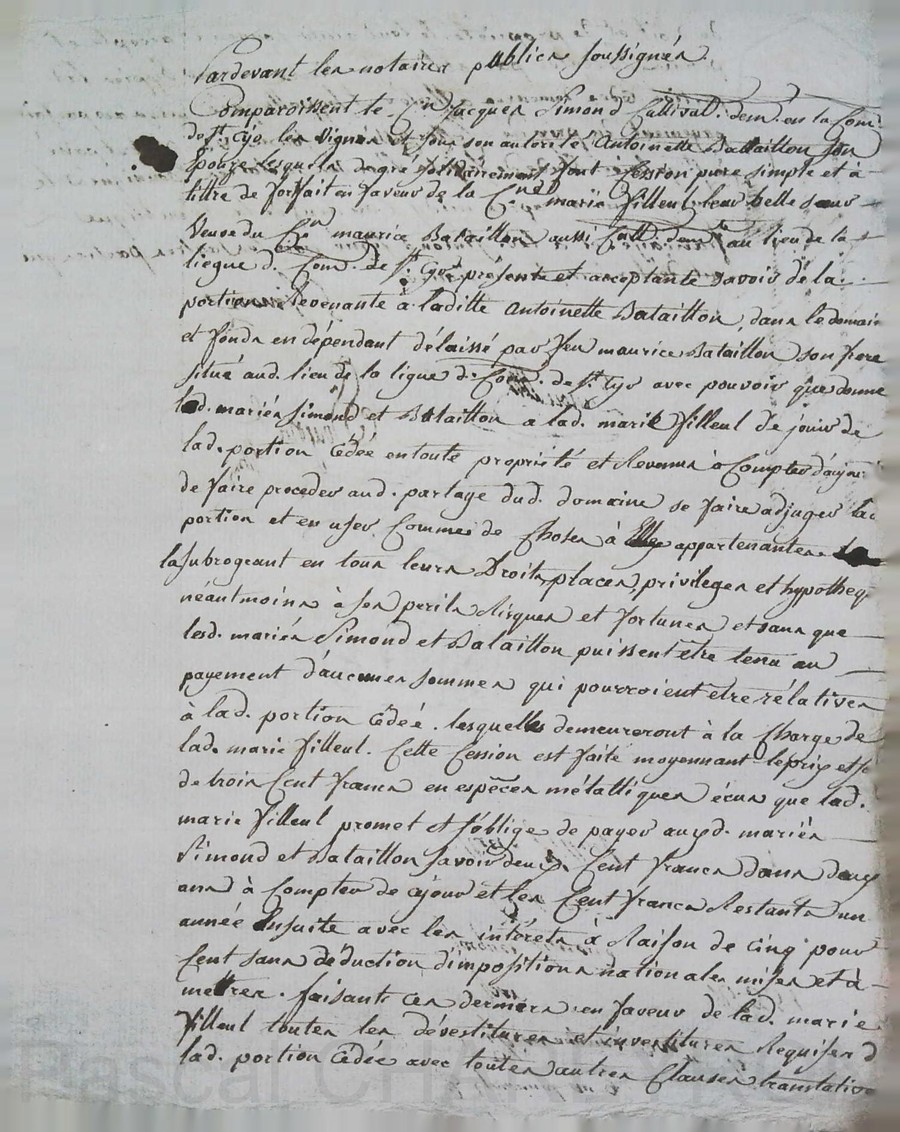 Pardevant les notaires publics soussignés
Comparoissent le C.en Jacques Simond Cultivat. dem.t en la Com.
de S.t Cyr les vignes et sous son autorité Antoinette Bataillon son
épouse lesquels de gré solidairement font Cession pure simple et à
tittre de forfait en faveur de la C.enne marie Villeul leur belle sœur
Veuve du C.en maurice Bataillon aussi Cult. dem.t au lieu de la
liegue d. Com. de S.t Cyr présente et acceptante savoir de la
portion Revenante à laditte Antoinette Bataillon, dans le domaine
et fonds en dépendant délaissé par feu maurice Bataillon son frere
situé aud. lieu de la ligue d. Com. de S.t Cyr avec pouvoir que donne
led. mariés Simond et Bataillon a lad. marie Villeul de jouir de
lad. portion Cédée en toute propriété et Revenus à Compter d'aujour
de faire proceder aud. partage dud. domaine se faire adjuger lad.
portion et en user Comme de Choses à Elle appartenantes
la subrogeant en tous leurs Droits, places, privileges et hypotheq.
néantmoins à ses perils Risques et fortunes et sans que
lesd. mariés Simond et Bataillon puissent être tenu au
payement d'aucunes sommes qui pourroient etre rélatives
à lad. portion Cédéé. lesquelles demeureront à la Charge de
lad. marie Villeul. Cette Cession est faite moyennant le prix et
de trois Cent francs en espèces métalliques écus que lad.
marie Villeul promet et s'oblige de payer auxd. mariés
Simond et Bataillon savoir deux Cent francs dans deux
ans à Compter de ce jour et les Cent francs Restants un
année Ensuite avec les intérets à Raison de cinq pour
Cent sans déduction d'impositions nationales mises et à
mettres. faisants ces derniers en faveur de lad. marie
Villeul toutes les dévestitures et investitures Requises d
lad. portion Cédée avec toutes autres Clauses translative